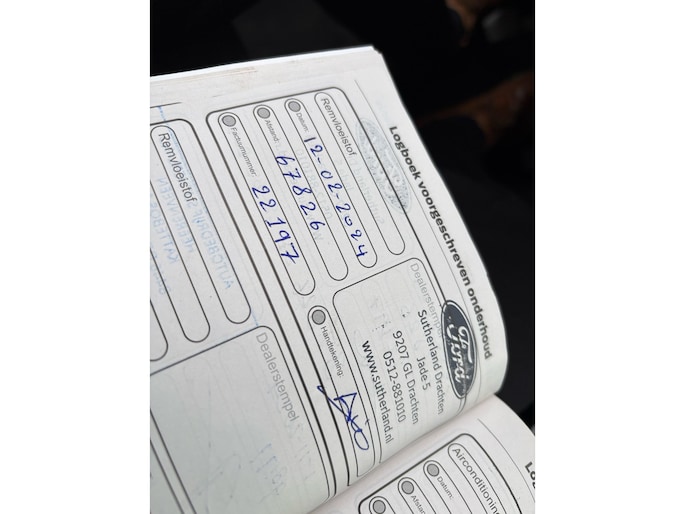 Logboek voorgeschreven onderhoud
Remvloeistof
Datum: 12-02-2024
Afstand: 67826
Factuurnummer: 22197
Dealerstempel
Ford
Sutherland Drachten
Jade 5
9207 GL Drachten
0512-881010
www.sutherland.nl
Handtekening:
Remvloeistof
Dealerstempel
Airconditioning
Datum: